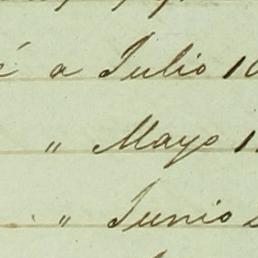 é a Julio 10
" Mayo 1
" Junio